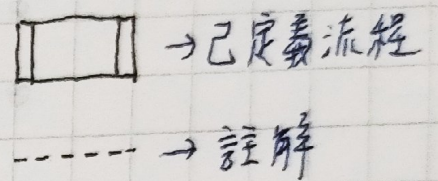 →已定義流程
→註解